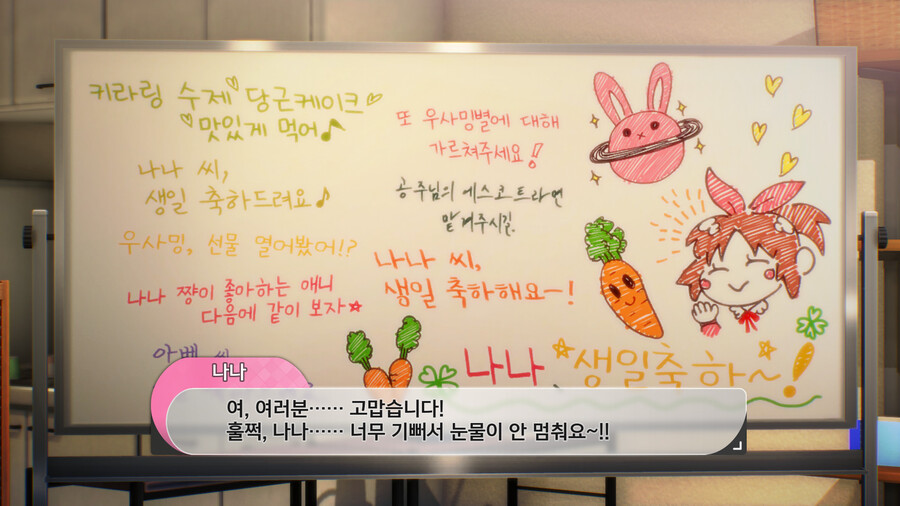 키라링 수제 당근케이크
맛있게 먹어
나나 씨,
생일 축하드려요
우사밍, 선물 열어봤어!?
나나 쨩이 좋아하는 애니
다음에 같이 보자
아베
또 우사밍별에 대해
가르쳐주세요!
공주님의 에스코트라면
맡겨주시길.
나나 씨,
생일 축하해요~!
나나 생일축하~!
나나
여, 여러분…… 고맙습니다!
훌쩍, 나나…… 너무 기뻐서 눈물이 안 멈춰요~!!